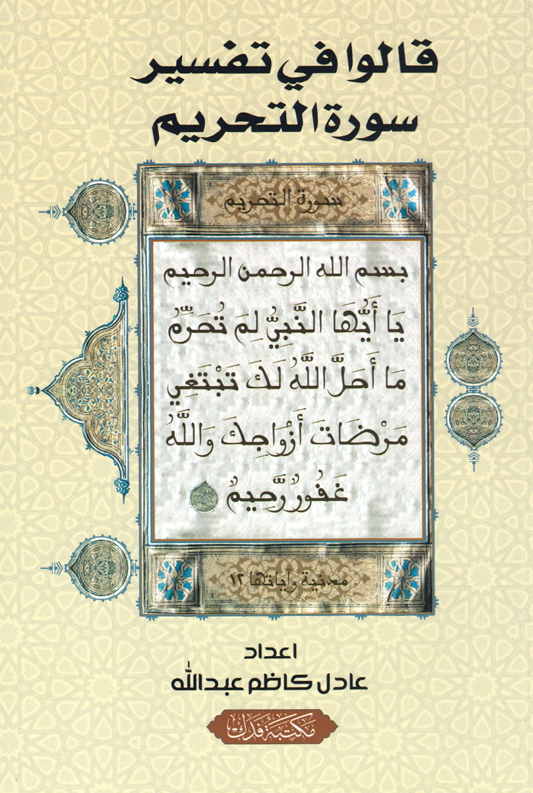 قالوا في تفسير
سورة التحريم
سورة التحريم
بسم الله الرحمن الرحيم
يَا أَيُّهَا النَّبِيُّ لِمَ تُحَرِّمُ
مَا أَحَلَّ اللَّهُ لَكَ تَبْتَغِي
مَرْضَاتَ أَزْوَاجِكَ وَاللَّهُ
غَفُورٌ رَّحِيمٌ
مدنية وآياتها ١٢
اعداد
عادل كاظم عبدالله
مكتبة فدك